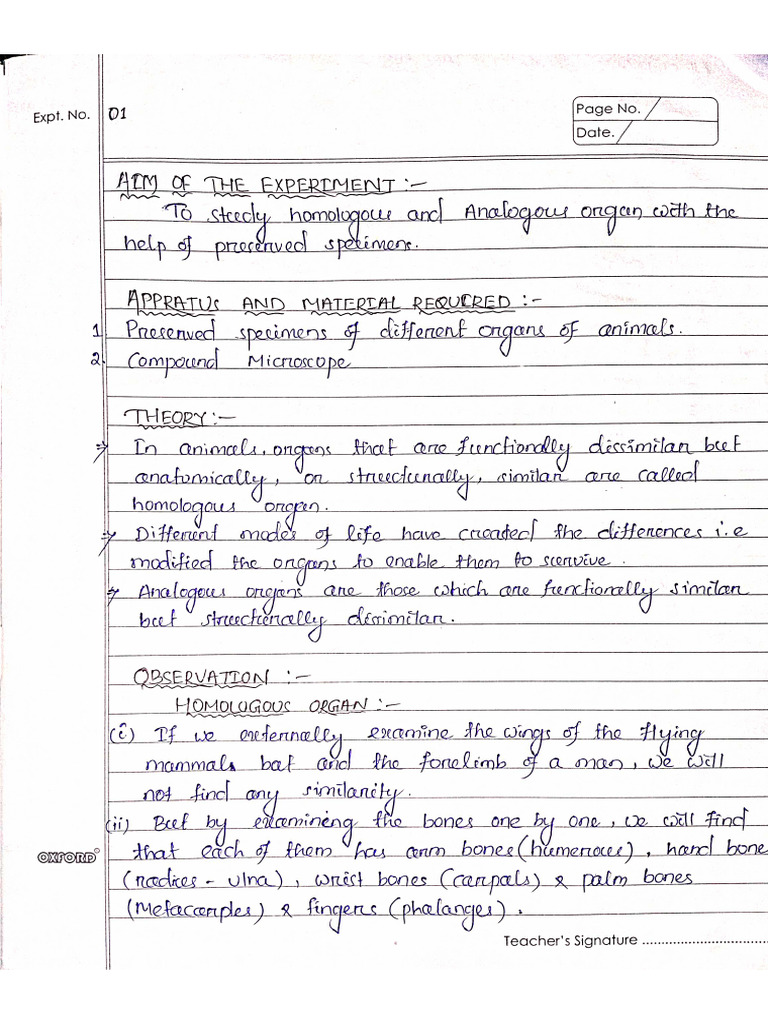 Expt. No. 01
Page No.
Date.
AIM OF THE EXPERIMENT :-
To study homologous and Analogous organ with the
help of preserved specimens.
APPRATUS AND MATERIAL REQUIRED :-
1. Preserved specimens of different organs of animals.
2. Compound Microscope
THEORY :-
⇒ In animals, organs that are functionally dissimilar but
anatomically, or structurally, similar are called
homologous organ.
⇒ Different modes of life have created the differences i.e
modified the organs to enable them to survive.
⇒ Analogous organs are those which are functionally similar
but structurally dissimilar.
OBSERVATION :-
HOMOLOGOUS ORGAN :-
(i) If we externally examine the wings of the flying
mammals bat and the forelimb of a man, we will
not find any similarity.
(ii) But by examining the bones one by one, we will find
that each of them has arm bones (humerous), hand bone
(radius - ulna), wrist bones (carpals) & palm bones
(Metacarples) & fingers (phalanges).
OXFORD
Teacher's Signature ..................................